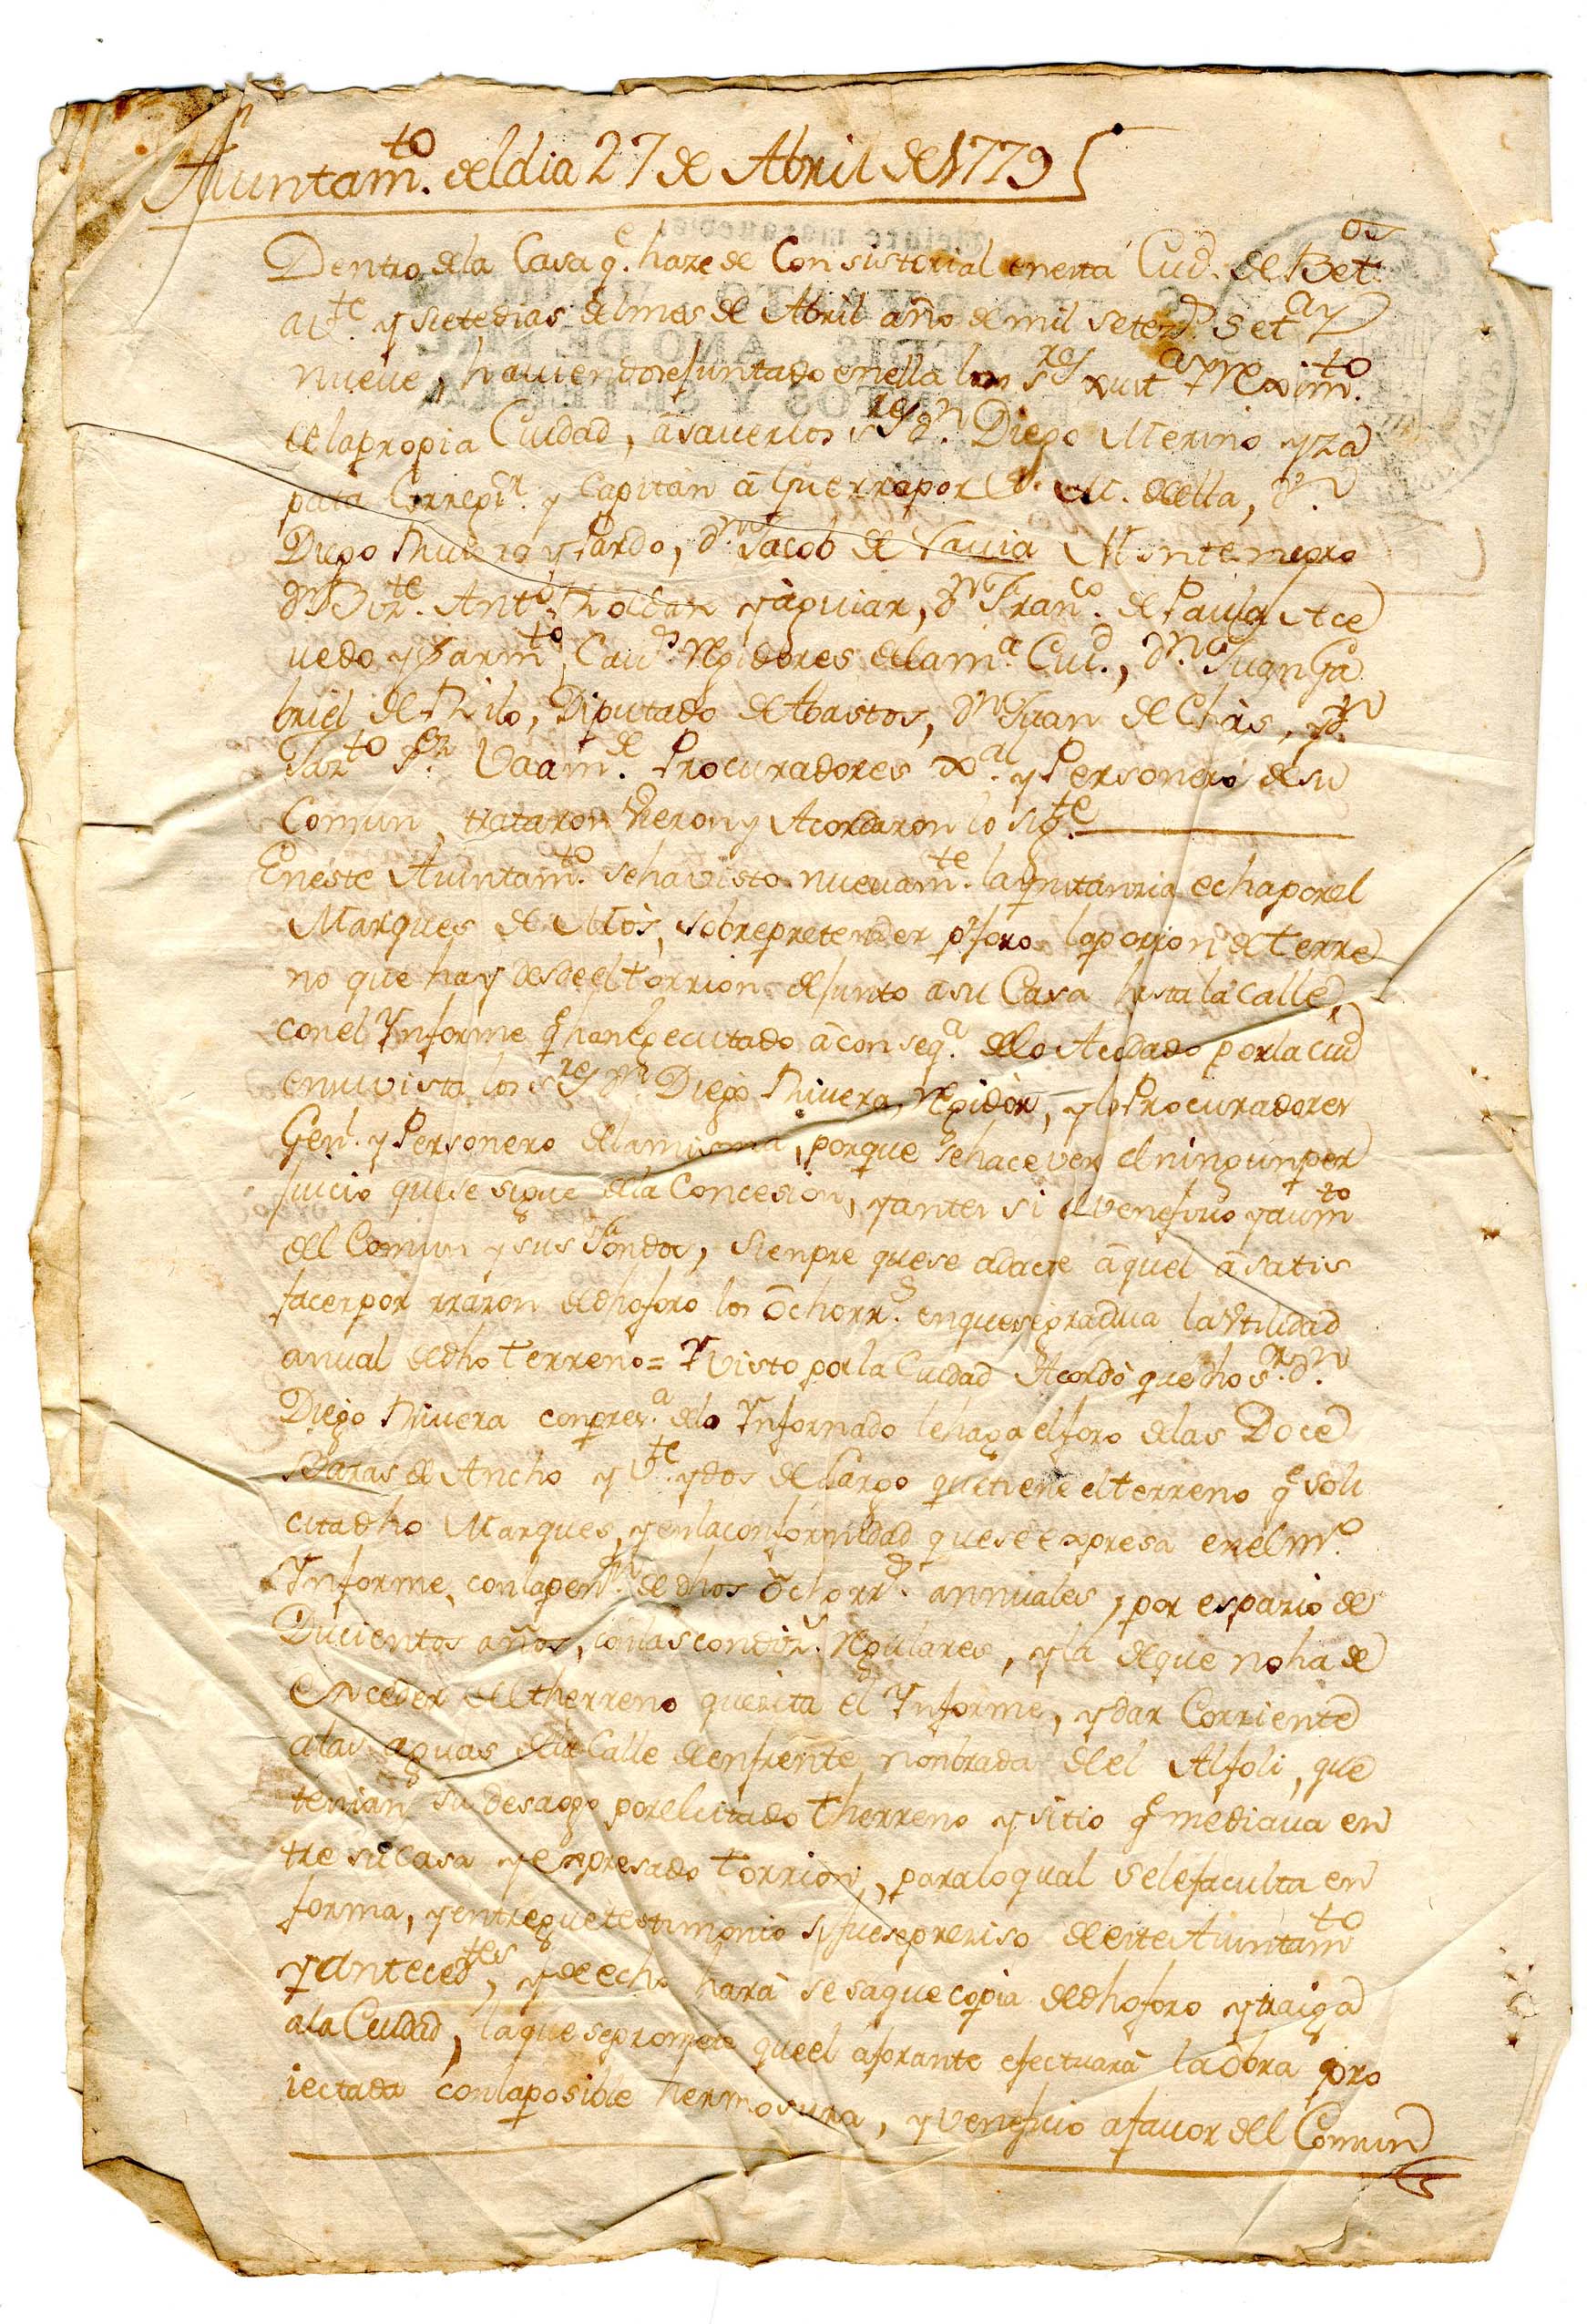 Aiuntamto. del dia 27 de Abril de 1779
Dentro dela Casa qe. haze de Consistorial en esta Ciud. de Betos
a Vte. y siete dias del mes de Abril año de mil setezs. seta y
nueve, haviendose Juntado en ella los sres Justa y Reximto.
de la propia Ciudad, à saver los sres dn. Diego Merino y Za
pata Corregr. y Capitàn à Guerra por S. M. de ella, dn.
Diego Rivera y Pardo, dn Jacob de Vavia Montenegro
dn Bizte. Anto. Roldan y àguiar, dn Franco. de Paula Ace
vedo y Sarmto, Cavs. Rgidores dela ma. Ciud., dn. Juan Ga
briel de Rilo, Diputado de Abastos, dn Juan de Chàs, y dn.
Jazto Pr. Vaamde. Procuradores Xal. y Personero de su
Comun, trataron vieron y Acordaron lo sigte.
En este Aiuntamto. se ha visto nuevamte. la ynstanzia echa por el
Marques de Mòs, sobre pretender pr. foro la porzion de terre
no que hay desde el torrion de Junto a su Casa hasta la Calle,
con el Ynforme qe han Egecutado à conseqa. delo Acordado por la Ciud
en su vista los sres dn Diego Rivera, Rgidòr, y los Procuradores
Genl. y Personero dela misma, por que se hace ver el ningun per
Juicio que se sigue dela Concesion, y antes si el veneficio y aumto
del Comun y sus Fondos, sienpre que se adacte àquel à satis
facer por rrazon de dho foro los òcho rrs. en que se gradua la Utilidad
anual de dho terreno = Y visto por la Ciudad Acordò que dho sr. dn.
Diego Rivera con presa. delo Ynformado le haga el foro delas Doce
Baras de Ancho y Vte. y dos de Largo que tiene el terreno qe soli
cita dho Marques, y en la conformidad que se expresa en el mo.
Ynforme, con la penn. de dhos òcho rrs. annuales, por espazio de
Ducientos años, con las condizs. Rgulares, y la de que no ha de
Exceder del therreno que cita el Ynforme, y dar Corriente
a las aguas dela Calle de enfrente nonbrada de el Alfoli, que
tenian su desaogo por el citado therreno y sitio qe mediava en
tre su Casa y expresado torrion, para lo qual se le faculta en
forma, y entregue testimonio si fuese preziso de este Aiuntamto
y antecedtes, y de echo harà se saque copia de dho foro y traiga
a la Ciudad, la que se promete que el aforante efectuarà la òbra pro
iectada con la posible hermosura, y veneficio a favor del Comun